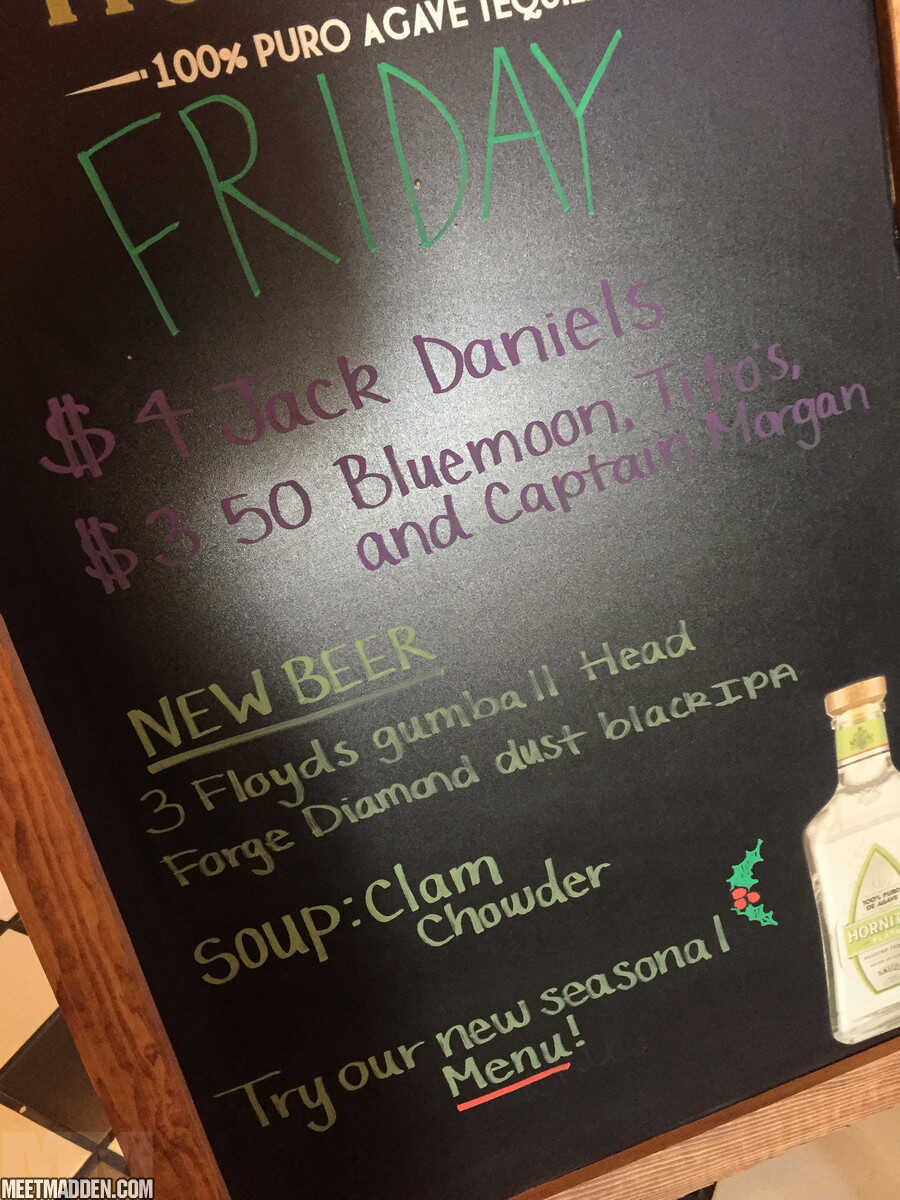 100% PURO AGAVE
FRIDAY
$4 Jack Daniels
$3.50 Bluemoon, Tito's,
and Captain Morgan
NEW BEER
3 Floyds gumball Head
Forge Diamond dust black IPA
Soup: Clam
Chowder
Try our new seasonal
Menu!
100% PURO
DE AGAVE
MEETMADDEN.COM